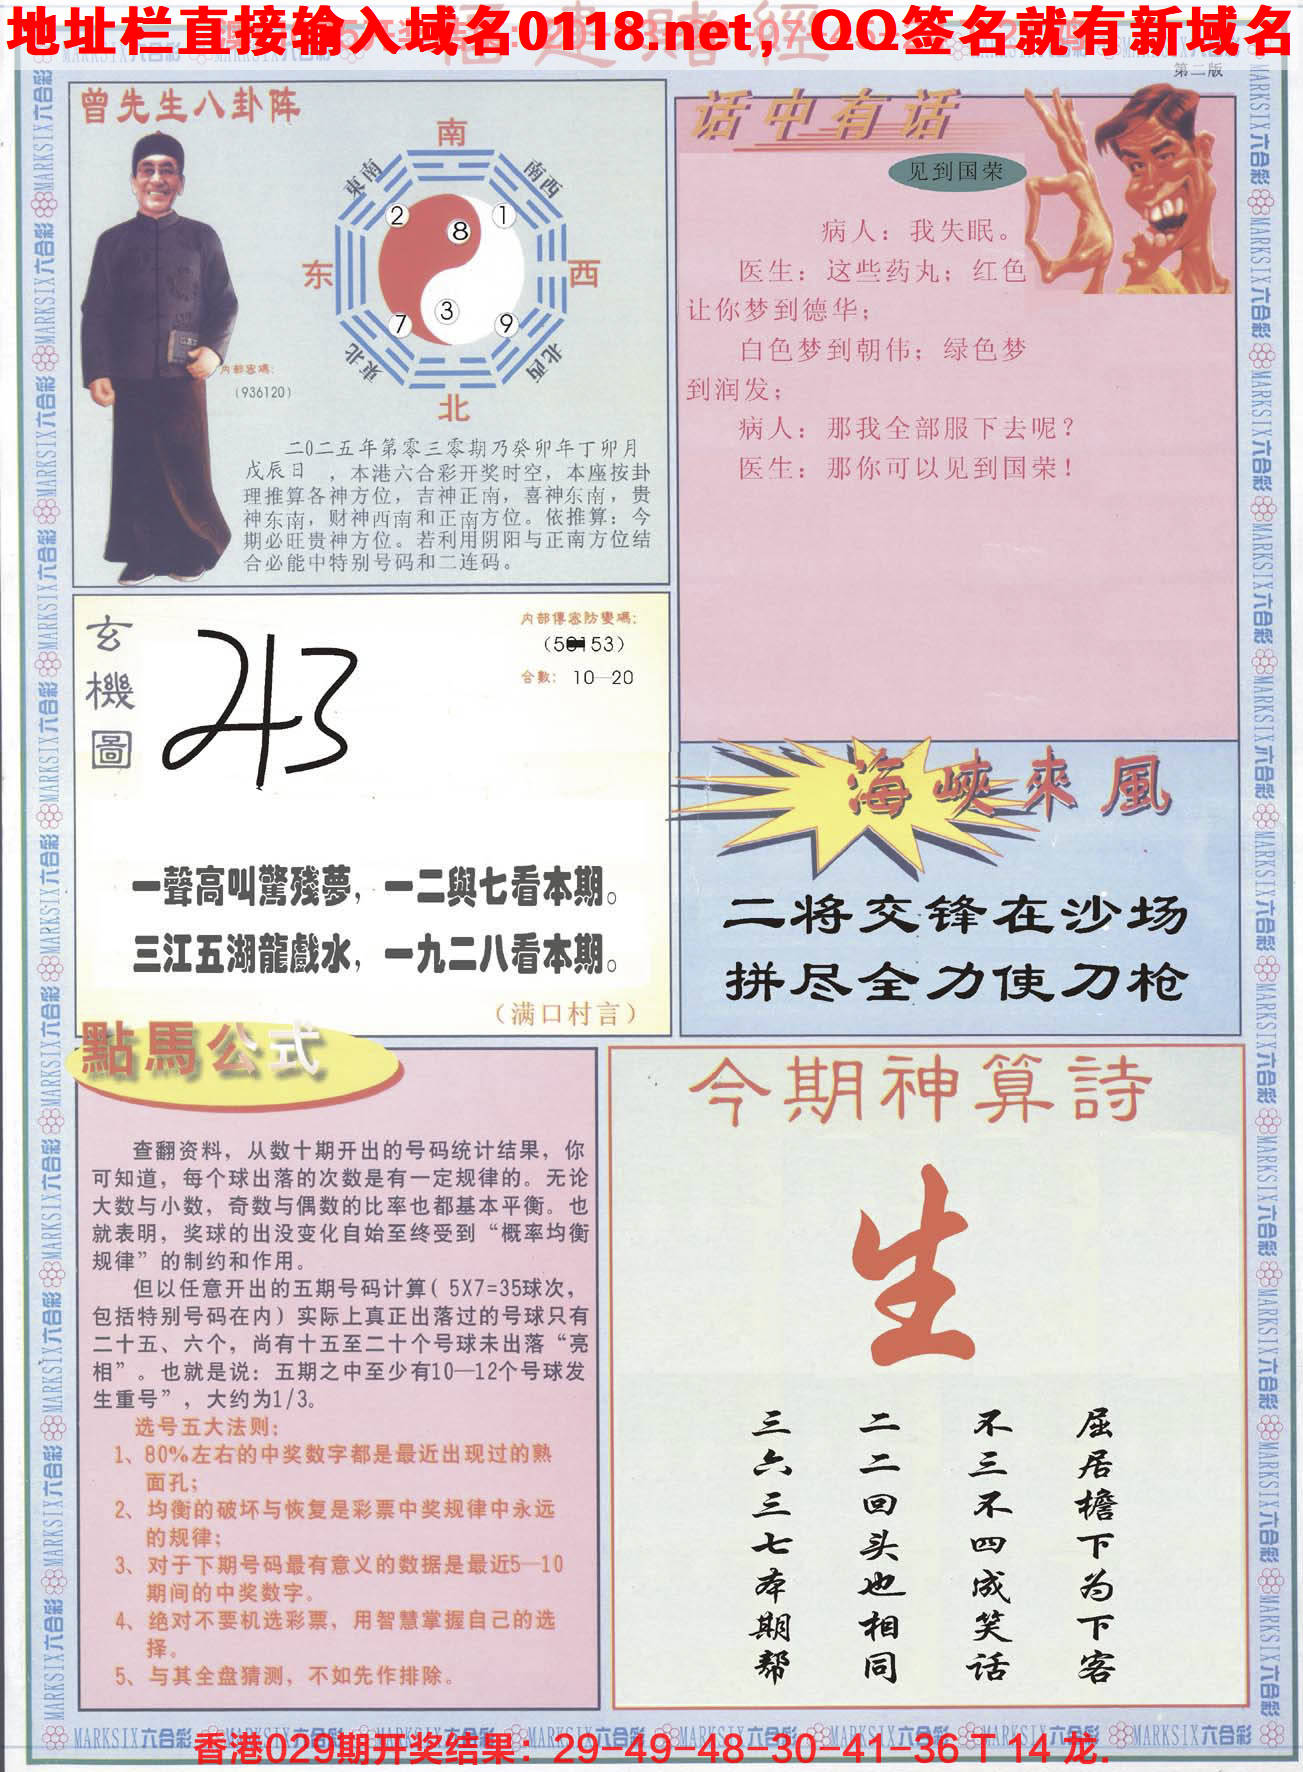 地址栏直接输入域名0118.net，QQ签名就有新域名
第二版
曾先生八卦阵
南
東南
南西
2
1
8
东
西
3
7
9
東北
北西
北
内部密碼：
（936120）
二0二五年第零三零期乃癸卯年丁卯月
戊辰日　，本港六合彩开奖时空，本座按卦
理推算各神方位，吉神正南，喜神东南，贵
神东南，财神西南和正南方位。依推算：今
期必旺贵神方位。若利用阴阳与正南方位结
合必能中特别号码和二连码。
话中有话
见到国荣
病人：我失眠。
医生：这些药丸；红色
让你梦到德华；
白色梦到朝伟；绿色梦
到润发；
病人：那我全部服下去呢？
医生：那你可以见到国荣！
玄機圖
内部傳密防變碼：
合數： 10—20
一聲高叫驚殘夢，一二與七看本期。
三江五湖龍戲水，一九二八看本期。
（满口村言）
海峽來風
二将交锋在沙场
拼尽全力使刀枪
點馬公式
查翻资料，从数十期开出的号码统计结果，你
可知道，每个球出落的次数是有一定规律的。无论
大数与小数，奇数与偶数的比率也都基本平衡。也
就表明，奖球的出没变化自始至终受到“概率均衡
规律”的制约和作用。
但以任意开出的五期号码计算（5X7=35球次，
包括特别号码在内）实际上真正出落过的号球只有
二十五、六个，尚有十五至二十个号球未出落“亮
相”。也就是说：五期之中至少有10—12个号球发
生重号”，大约为1/3。
选号五大法则：
1、80%左右的中奖数字都是最近出现过的熟
面孔；
2、均衡的破坏与恢复是彩票中奖规律中永远
的规律；
3、对于下期号码最有意义的数据是最近5—10
期间的中奖数字。
4、绝对不要机选彩票，用智慧掌握自己的选
择。
5、与其全盘猜测，不如先作排除。
今期神算詩
生
屈居檐下为下客
不三不四成笑话
二二回头也相同
三六三七本期帮
MARKSIX六合彩
香港029期开奖结果：29-49-48-30-41-36 T 14 龙.